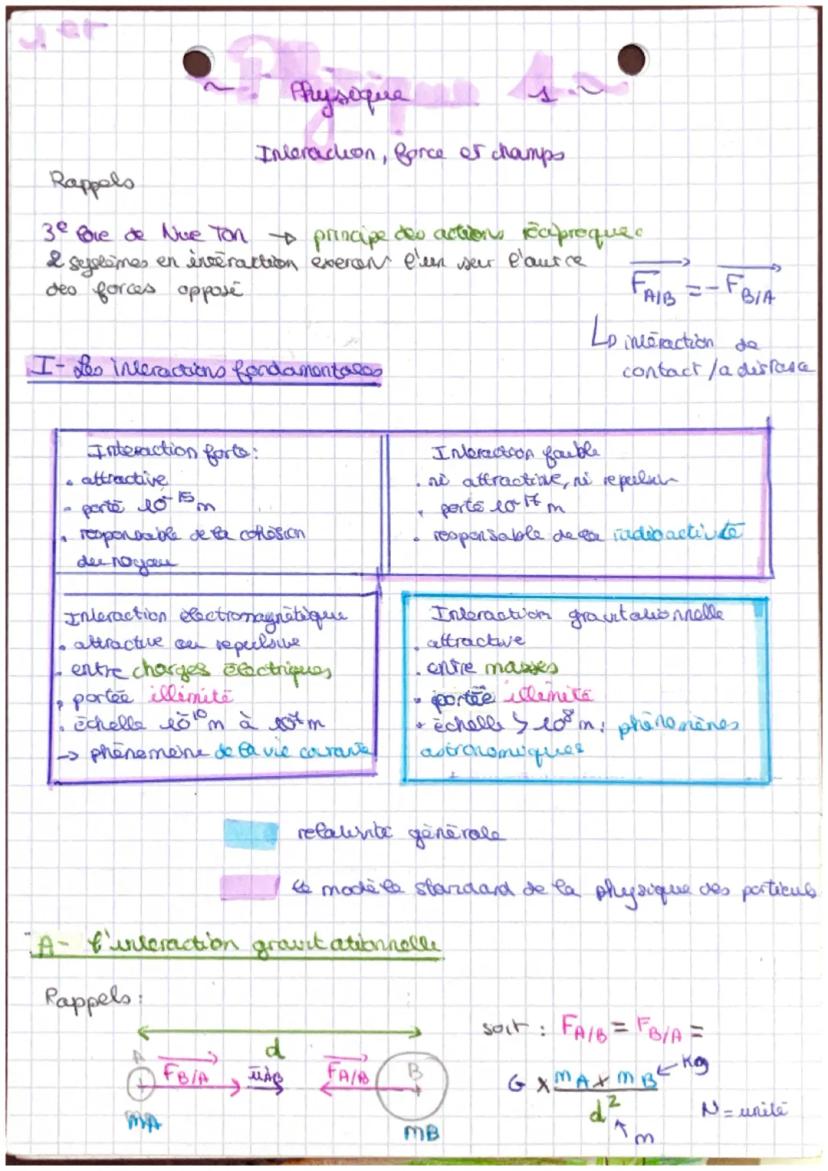 1.er
Physique 1
~ Physique 1 ~
Interaction, force et champs
Rappels
3e loie de Nue Ton → principe des actions réciproques
2 systèmes en intéraction exercent l'un sur l'autre
des forces opposé
F A/B = - F B/A
↳ intéraction de
contact / a distance
I - Les interactions fondamentales
Interaction forte :
• attractive
• porté 10^-15 m
• responsable de la cohésion
du noyau
Interaction faible
• ni attractive, ni repulsive
• porté 10^-17 m
• responsable de la radioactivité
Interaction électromagnétique
• attractive ou repulsive
• entre charges électriques
• portée illimité
• échelle 10^-10 m à 10^7 m
→ phénomène de la vie courante
Interaction gravitationnelle
• attractive
• entre masses
• portée illimité
• échelle > 10^8 m : phénomènes
astronomiques
relativité générale
le modèle standard de la physique des particules
A - l'interaction gravitationnelle
Rappels :
d
A F B/A u AB F A/B B
mA mB
soit : F A/B = F B/A =
G x mA x mB ← Kg
d² ↑ m
N = unité